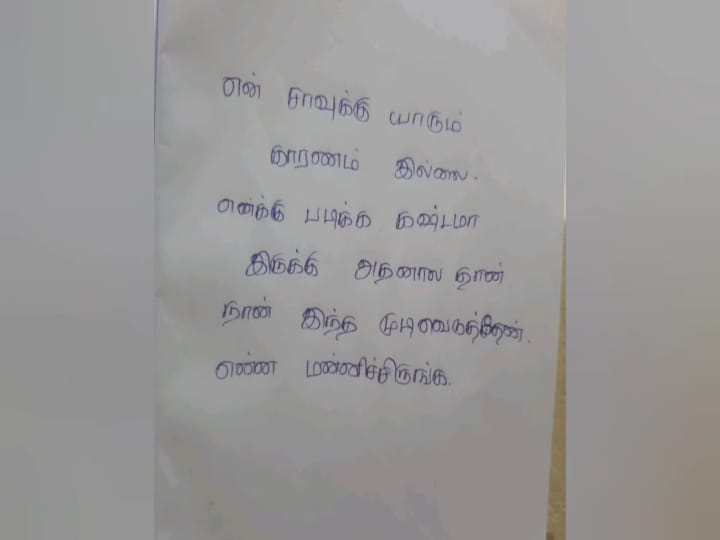 என் சாவுக்கு யாரும்
காரணம் இல்லை.
எனக்கு படிக்க கஷ்டமா
இருக்கு அதனால தான்
நான் இந்த முடிவெடுத்தேன்.
என்ன மன்னிச்சிருங்க.